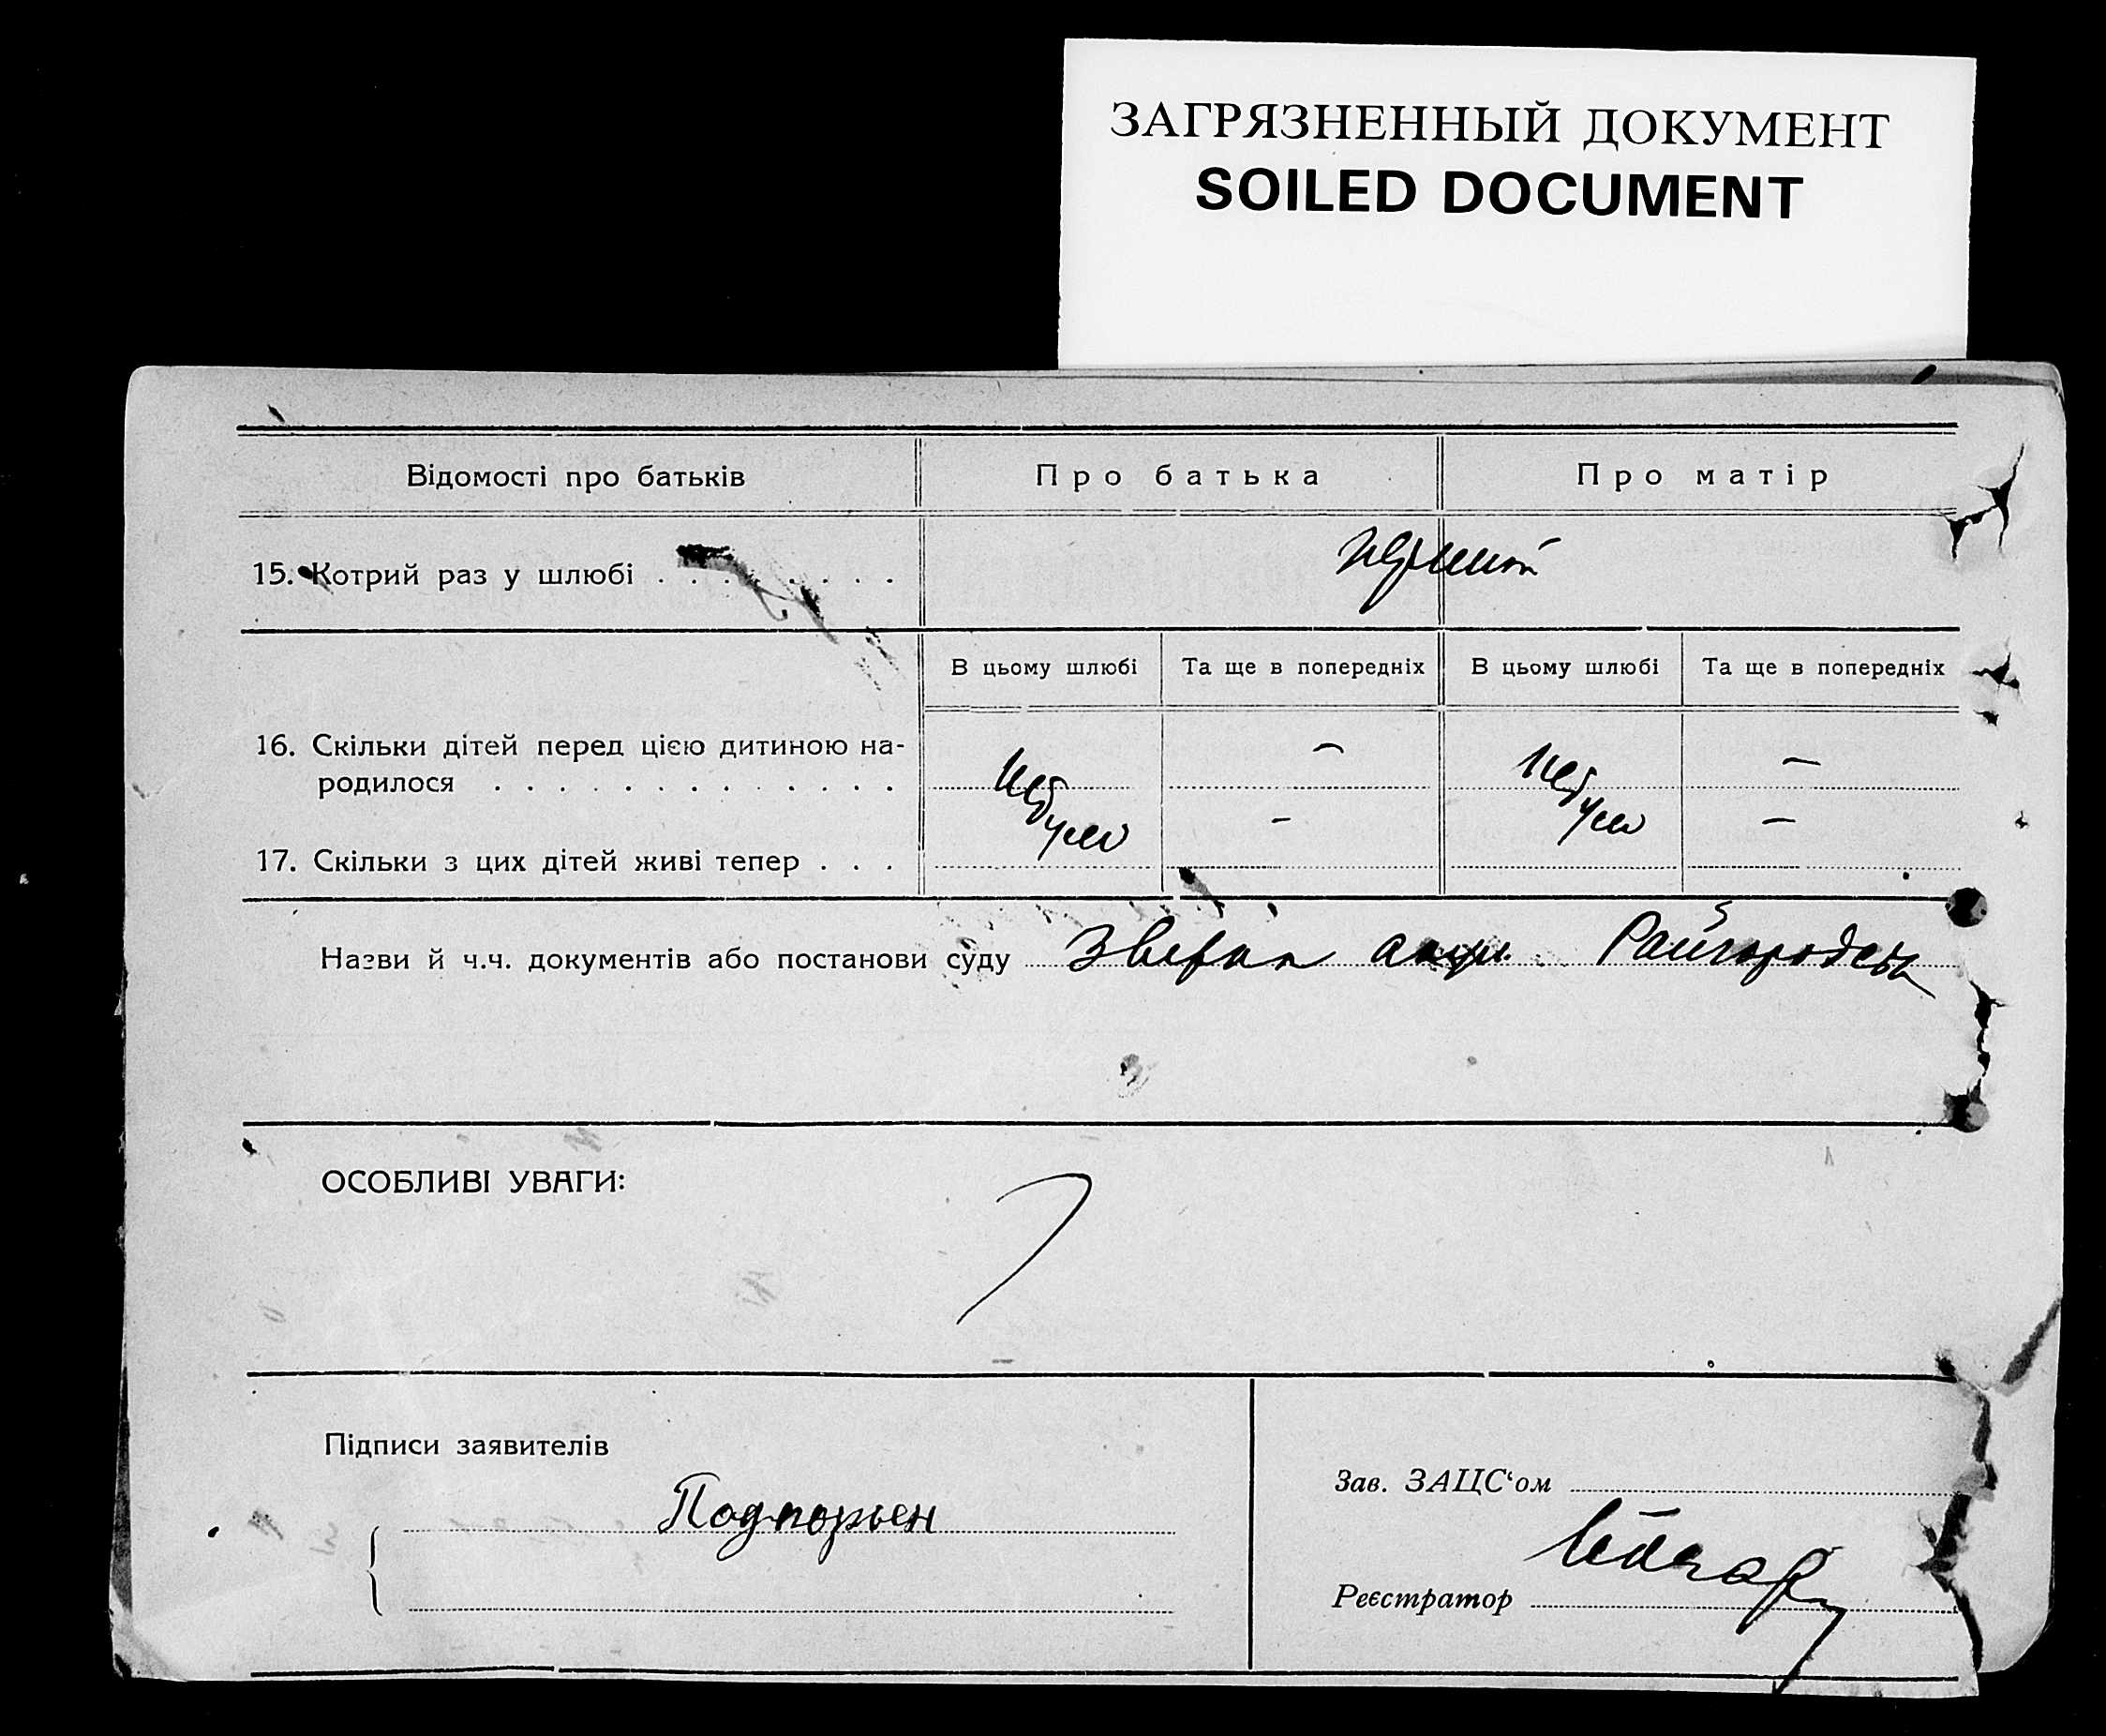 ЗАГРЯЗНЕННЫЙ ДОКУМЕНТ
SOILED DOCUMENT
Відомості про батьків Про батька Про матір
15. Котрий раз у шлюбі . . . . . . . . .
В цьому шлюбі Та ще в попередніх В цьому шлюбі Та ще в попередніх
16. Скільки дітей перед цією дитиною на-
родилося . . . . . . . . . . . . . . – –
17. Скільки з цих дітей живі тепер . . . – –
Назви й ч.ч. документів або постанови суду
ОСОБЛИВІ УВАГИ:
Підписи заявителів
Зав. ЗАЦС‘ом
Реєстратор